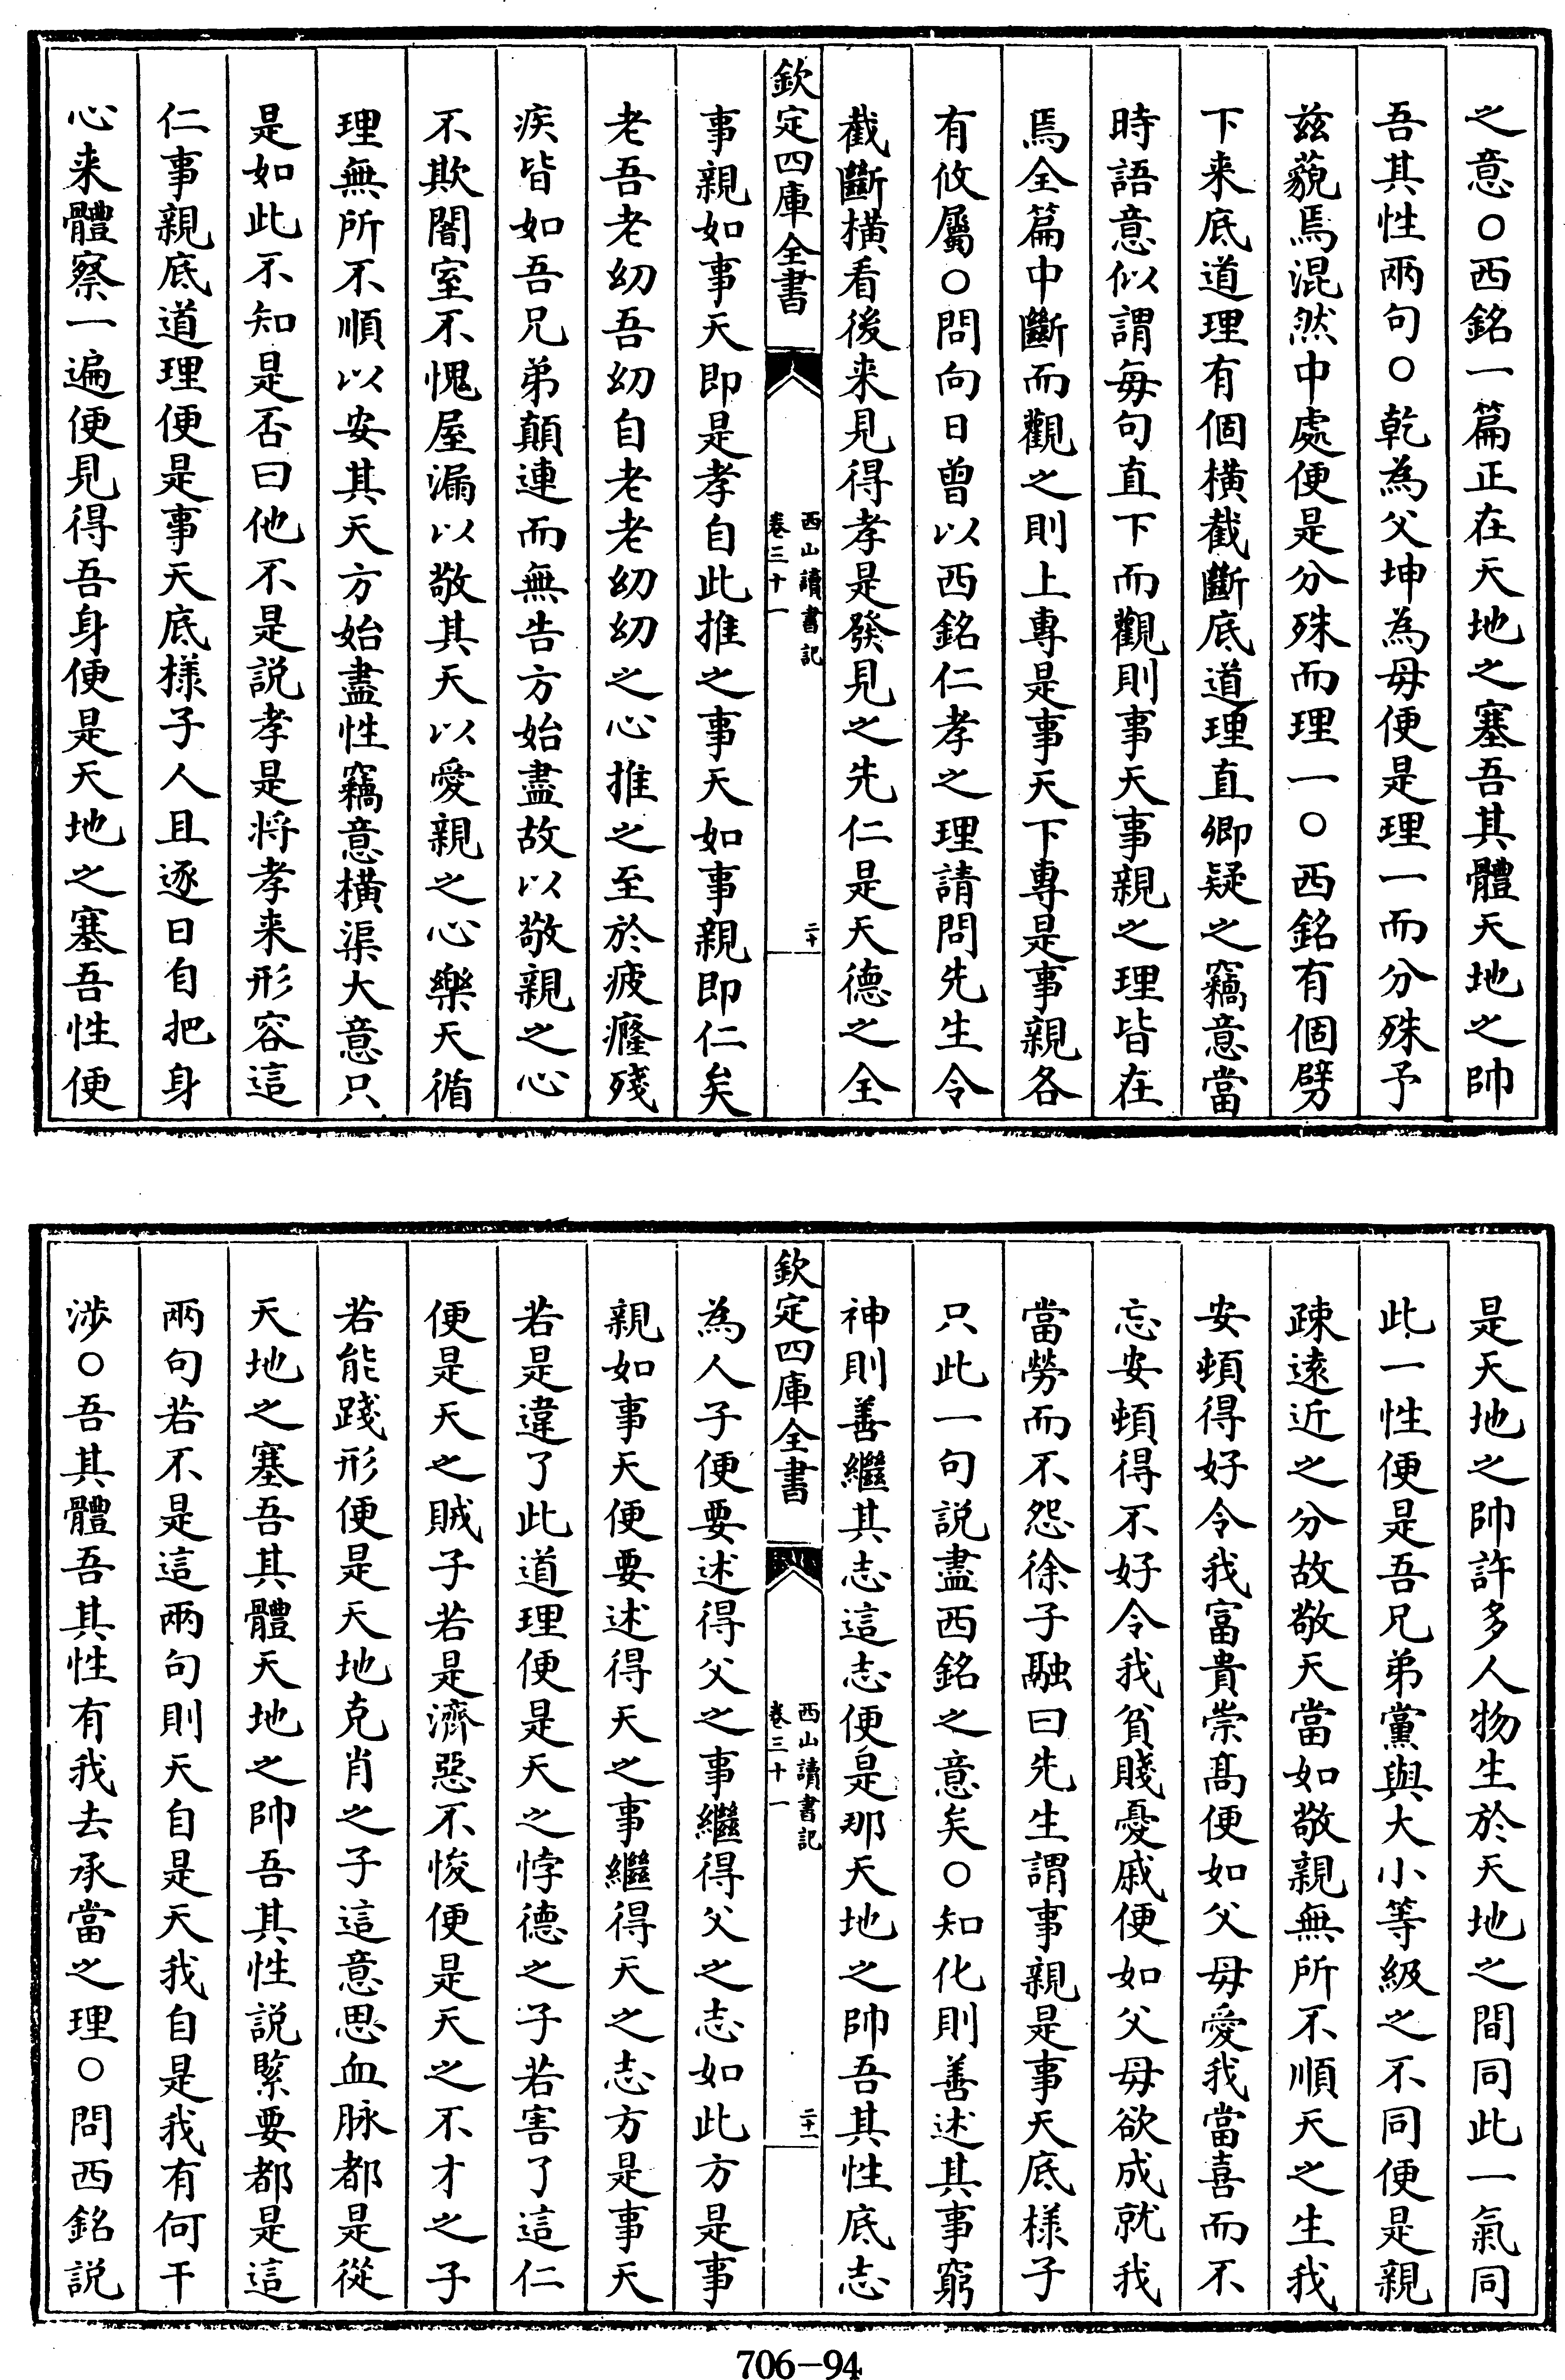 之意○西銘一篇正在天地之塞吾其體天地之帥
吾其性兩句○乾為父坤為母便是理一而分殊予
兹藐焉混然中處便是分殊而理一○西銘有個劈
下来底道理有個橫截斷底道理直卿疑之竊意當
時語意似謂每句直下而觀則事天事親之理皆在
焉全篇中斷而觀之則上專是事天下專是事親各
有攸屬○問向日曾以西銘仁孝之理請問先生令
截斷橫看後来見得孝是發見之先仁是天德之全
欽定四庫全書
西山讀書記
卷三十一
二十
事親如事天即是孝自此推之事天如事親即仁矣
老吾老幼吾幼自老老幼幼之心推之至於疲癃殘
疾皆如吾兄弟顛連而無告方始盡故以敬親之心
不欺闇室不愧屋漏以敬其天以愛親之心樂天循
理無所不順以安其天方始盡性竊意橫渠大意只
是如此不知是否曰他不是説孝是將孝来形容這
仁事親底道理便是事天底樣子人且逐日自把身
心来體察一遍便見得吾身便是天地之塞吾性便
是天地之帥許多人物生於天地之間同此一氣同
此一性便是吾兄弟黨與大小等級之不同便是親
疎遠近之分故敬天當如敬親無所不順天之生我
安頓得好令我富貴崇髙便如父母愛我當喜而不
忘安頓得不好令我貧賤憂戚便如父母欲成就我
當勞而不怨徐子融曰先生謂事親是事天底樣子
只此一句説盡西銘之意矣○知化則善述其事窮
神則善繼其志這志便是那天地之帥吾其性底志
欽定四庫全書
西山讀書記
卷三十一
二十一
為人子便要述得父之事繼得父之志如此方是事
親如事天便要述得天之事繼得天之志方是事天
若是違了此道理便是天之悖德之子若害了這仁
便是天之賊子若是濟惡不悛便是天之不才之子
若能踐形便是天地克肖之子這意思血脉都是從
天地之塞吾其體天地之帥吾其性説緊要都是這
兩句若不是這兩句則天自是天我自是我有何干
涉○吾其體吾其性有我去承當之理○問西銘説
706-94